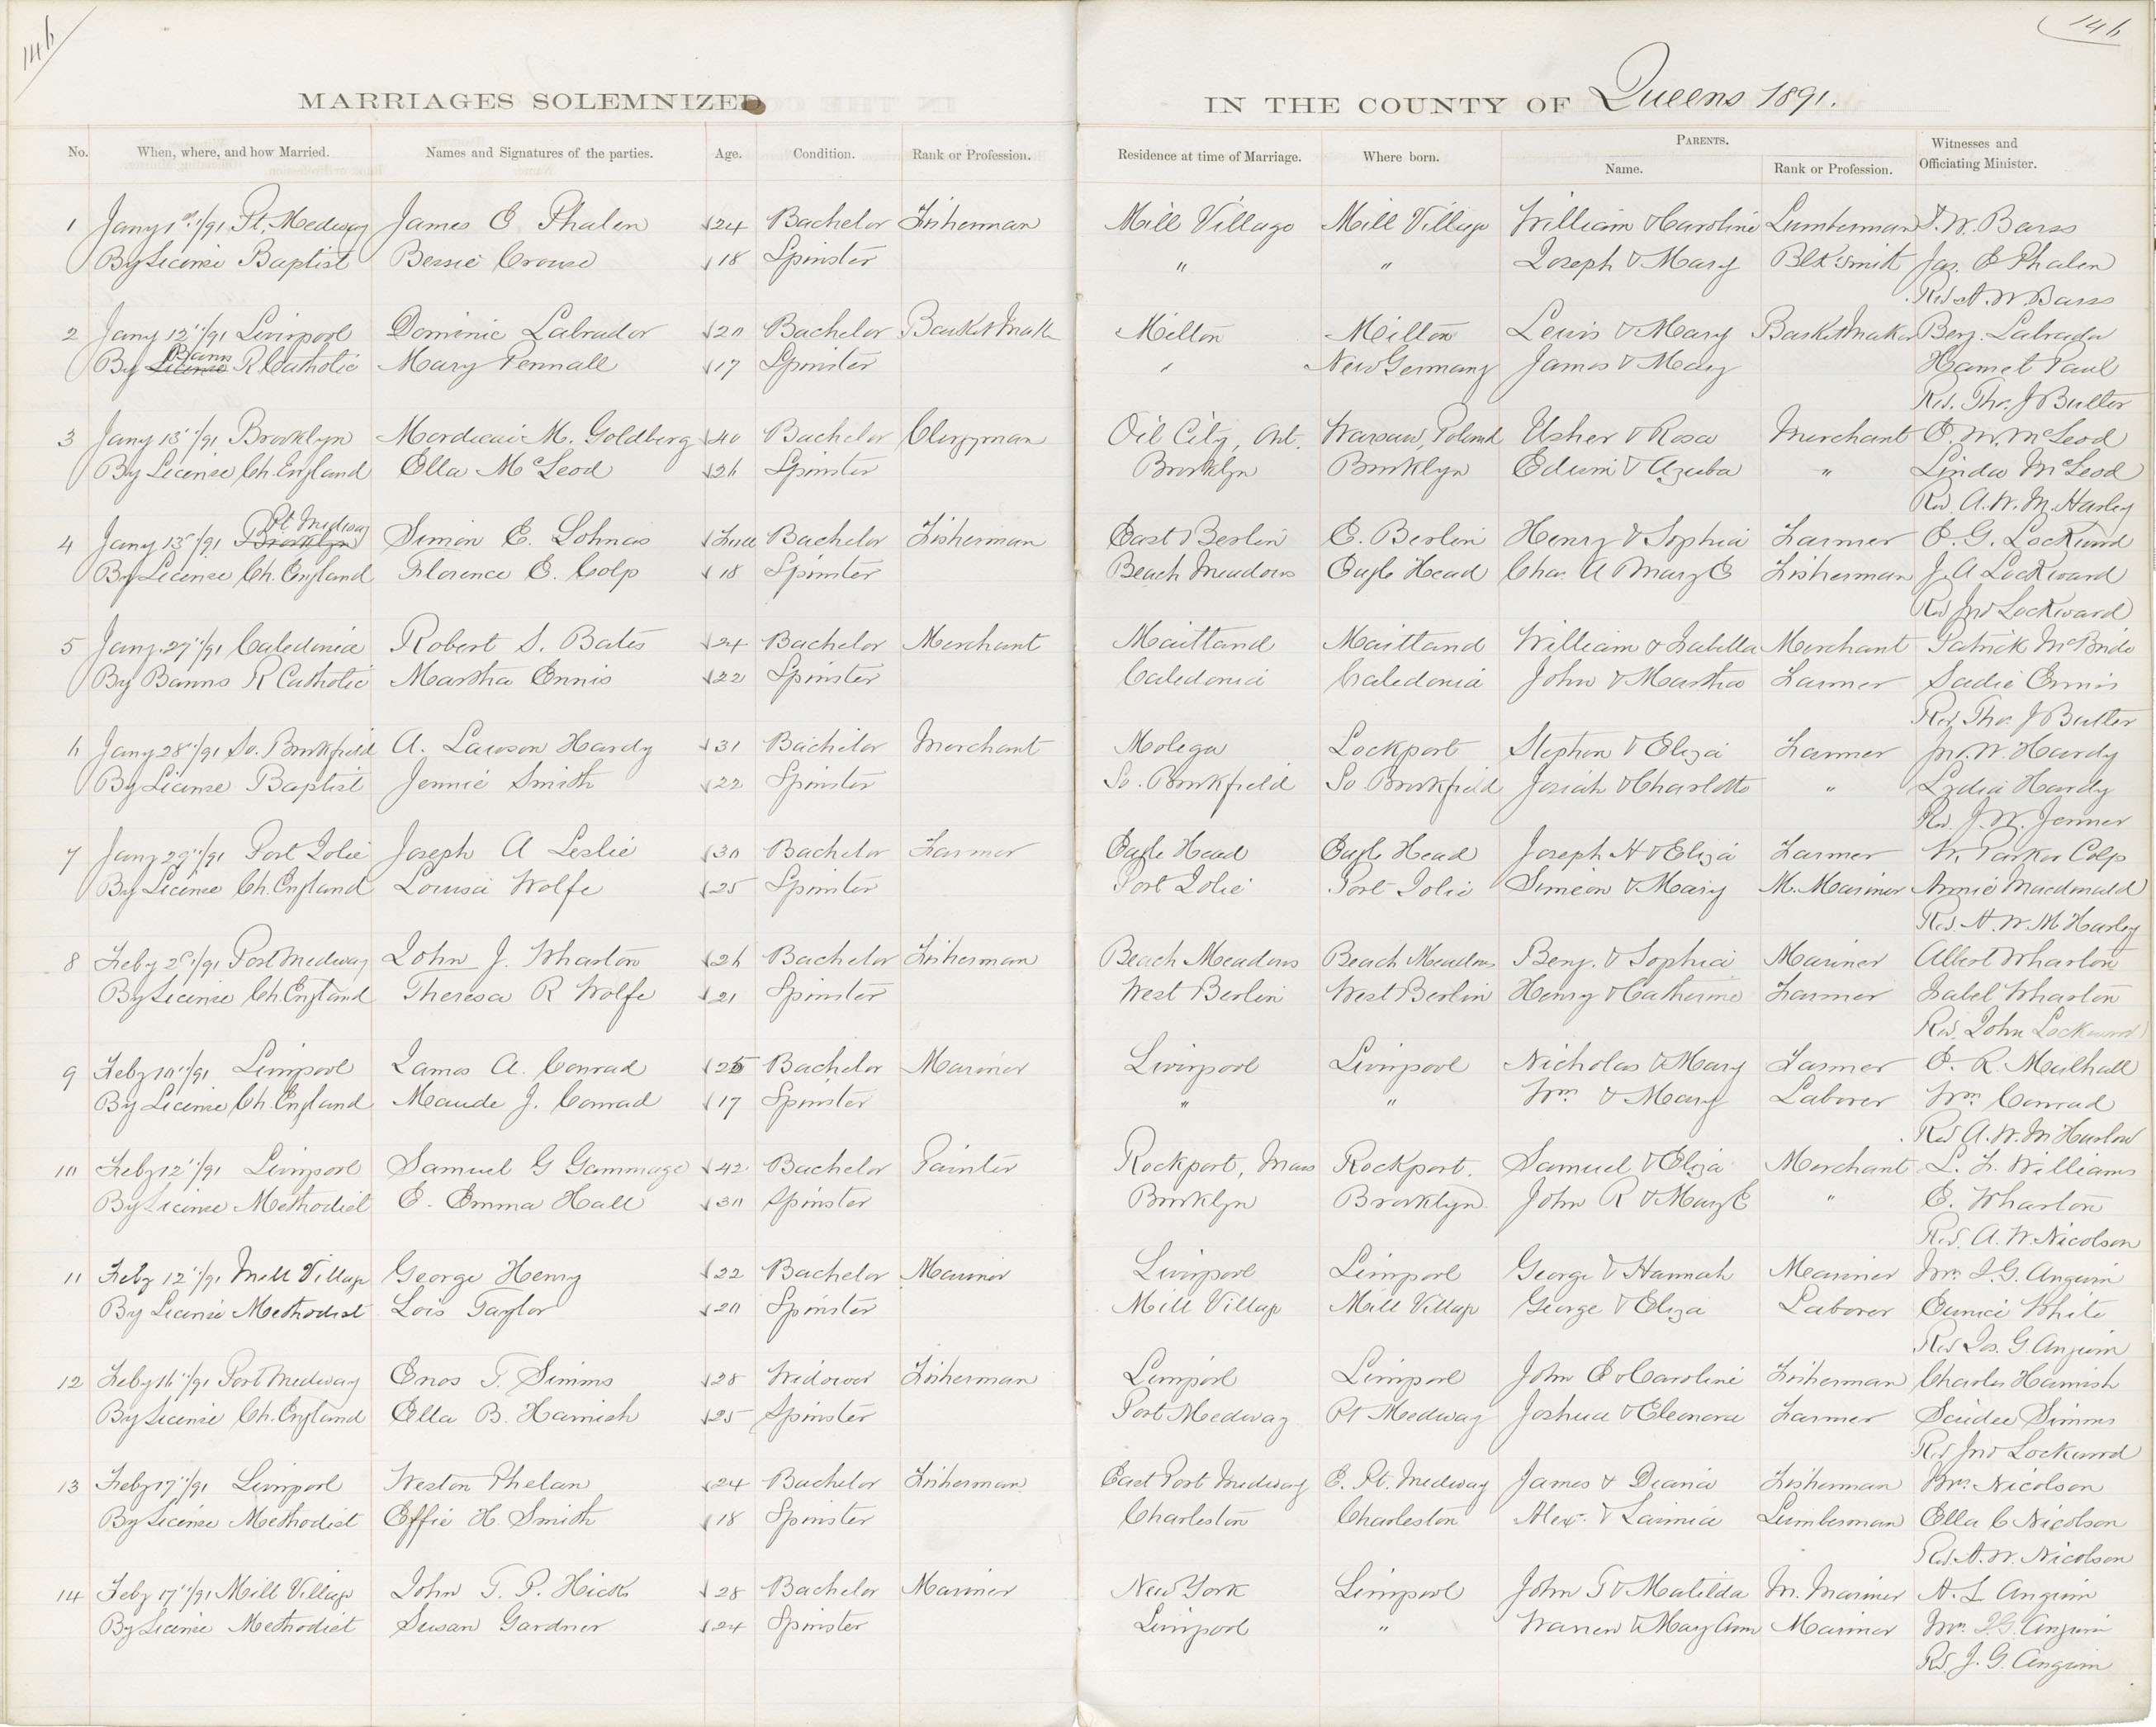 146
146
MARRIAGES SOLEMNIZED IN THE COUNTY OF Queens 1891.
No. When, where, and how Married. Names and Signatures of the parties. Age. Condition. Rank or Profession. Residence at time of Marriage. Where born. PARENTS. Name. Rank or Profession. Witnesses and Officiating Minister.
1 Jany 1st/91 Pt. Medway James E Phalen 24 Bachelor Fisherman Mill Village Mill Village William & Caroline Lumberman W. Barss
By License Baptist Bessie Crouse 18 Spinster " " Joseph & Mary Blksmith Jas. E Phalen
Rev A. W Barss
2 Jany 12"/91 Liverpool Dominic Labrador 20 Bachelor Basket Mak Milton Milton Lewis & Mary Basket Maker Benj. Labrador
By License Banns R Catholic Mary Pennall 17 Spinster " New Germany James & Mary Hamet Paul
Rev. Tho. J Butler
3 Jany 13"/91 Brooklyn Mordicai M. Goldberg 40 Bachelor Clergyman Oil City, Ont. Warsaw, Poland Usher & Rosa Merchant E. M. McLeod
By License Ch. England Ella McLeod 26 Spinster Brooklyn Brooklyn Edwin & Azuba " Linda McLeod
Rev. A. W. M. Harley
4 Jany 13"/91 Brooklyn Pt Medway Simon E. Lohnas Full Bachelor Fisherman East Berlin E. Berlin Henry & Sophia Farmer E. G. Lockward
By License Ch. England Florence E. Colp 18 Spinster Beach Meadows Eagle Head Chas. A Mary E Fisherman J. A Lockward
Rev Jno Lockward
5 Jany 27"/91 Caledonia Robert S. Bates 24 Bachelor Merchant Maitland Maitland William & Isabella Merchant Patrick McBride
By Banns R Catholic Martha Ennis 22 Spinster Caledonia Caledonia John & Martha Farmer Sadie Ennis
Rev. Tho. J Butler
6 Jany 28"/91 So. Brookfield A. Lawson Hardy 31 Bachelor Merchant Molega Lockport Stephen & Eliza Farmer Jno. W. Hardy
By License Baptist Jennie Smith 22 Spinster So. Brookfield So Brookfield Josiah & Charlotte " Lydia Hardy
Rev. J. W. Jenner
7 Jany 29"/91 Port Jolie Joseph A Leslie 30 Bachelor Farmer Eagle Head Eagle Head Joseph H & Eliza Farmer W. Parker Colp
By License Ch. England Louisa Wolfe 25 Spinster Port Jolie Port Jolie Simeon & Mary M. Mariner Annie Macdonald
Rev. A. W. M Harley
8 Feby 2"/91 Port Medway John J. Wharton 26 Bachelor Fisherman Beach Meadows Beach Meadows Benj. & Sophia Mariner Albert Wharton
By License Ch. England Theresa R Wolfe 21 Spinster West Berlin West Berlin Henry & Catherine Farmer Isabel Wharton
Rev. John Lockward
9 Feby 10"/91 Liverpool James A. Conrad 25 Bachelor Mariner Liverpool Liverpool Nicholas & Mary Farmer E. R. Mulhall
By License Ch. England Maude J. Conrad 17 Spinster " " Wm & Mary Laborer Wm Conrad
Rev A. W. M Harlow
10 Feby 12"/91 Liverpool Samuel G Gammage 42 Bachelor Painter Rockport, Mass Rockport. Samuel & Eliza Merchant L. F. Williams
By License Methodist E. Emma Hall 30 Spinster Brooklyn Brooklyn John R & Mary E " E. Wharton
Rev. A. W. Nicolson
11 Feby 12"/91 Mill Village George Henry 22 Bachelor Mariner Liverpool Liverpool George & Hannah Mariner Mrs. J. G. Angwin
By License Methodist Lois Taylor 20 Spinster Mill Village Mill Village George & Eliza Laborer Eunice White
Rev Jos. G Angwin
12 Feby 16"/91 Port Medway Enos T. Simms 28 Widower Fisherman Liverpool Liverpool John E & Caroline Fisherman Charles Harnish
By License Ch. England Ella B. Harnish 25 Spinster Port Medway Pt Medway Joshua & Eleonora Farmer Saidee Simms
Rev Jno Lockward
13 Feby 17"/91 Liverpool Weston Phelan 24 Bachelor Fisherman East Port Medway E. Pt. Medway James & Diania Fisherman Mrs. Nicolson
By License Methodist Effie H Smith 18 Spinster Charleston Charleston Alex. & Lavinia Lumberman Ella C Nicolson
Rev. A. W. Nicolson
14 Feby 17"/91 Mill Village John T. P. Hicks 28 Bachelor Mariner New York Liverpool John T & Matilda M. Mariner A. L Angwin
By License Methodist Susan Gardner 24 Spinster Liverpool " Warren & Mary Ann Mariner Mrs. J. G. Angwin
Rev. J. G. Angwin